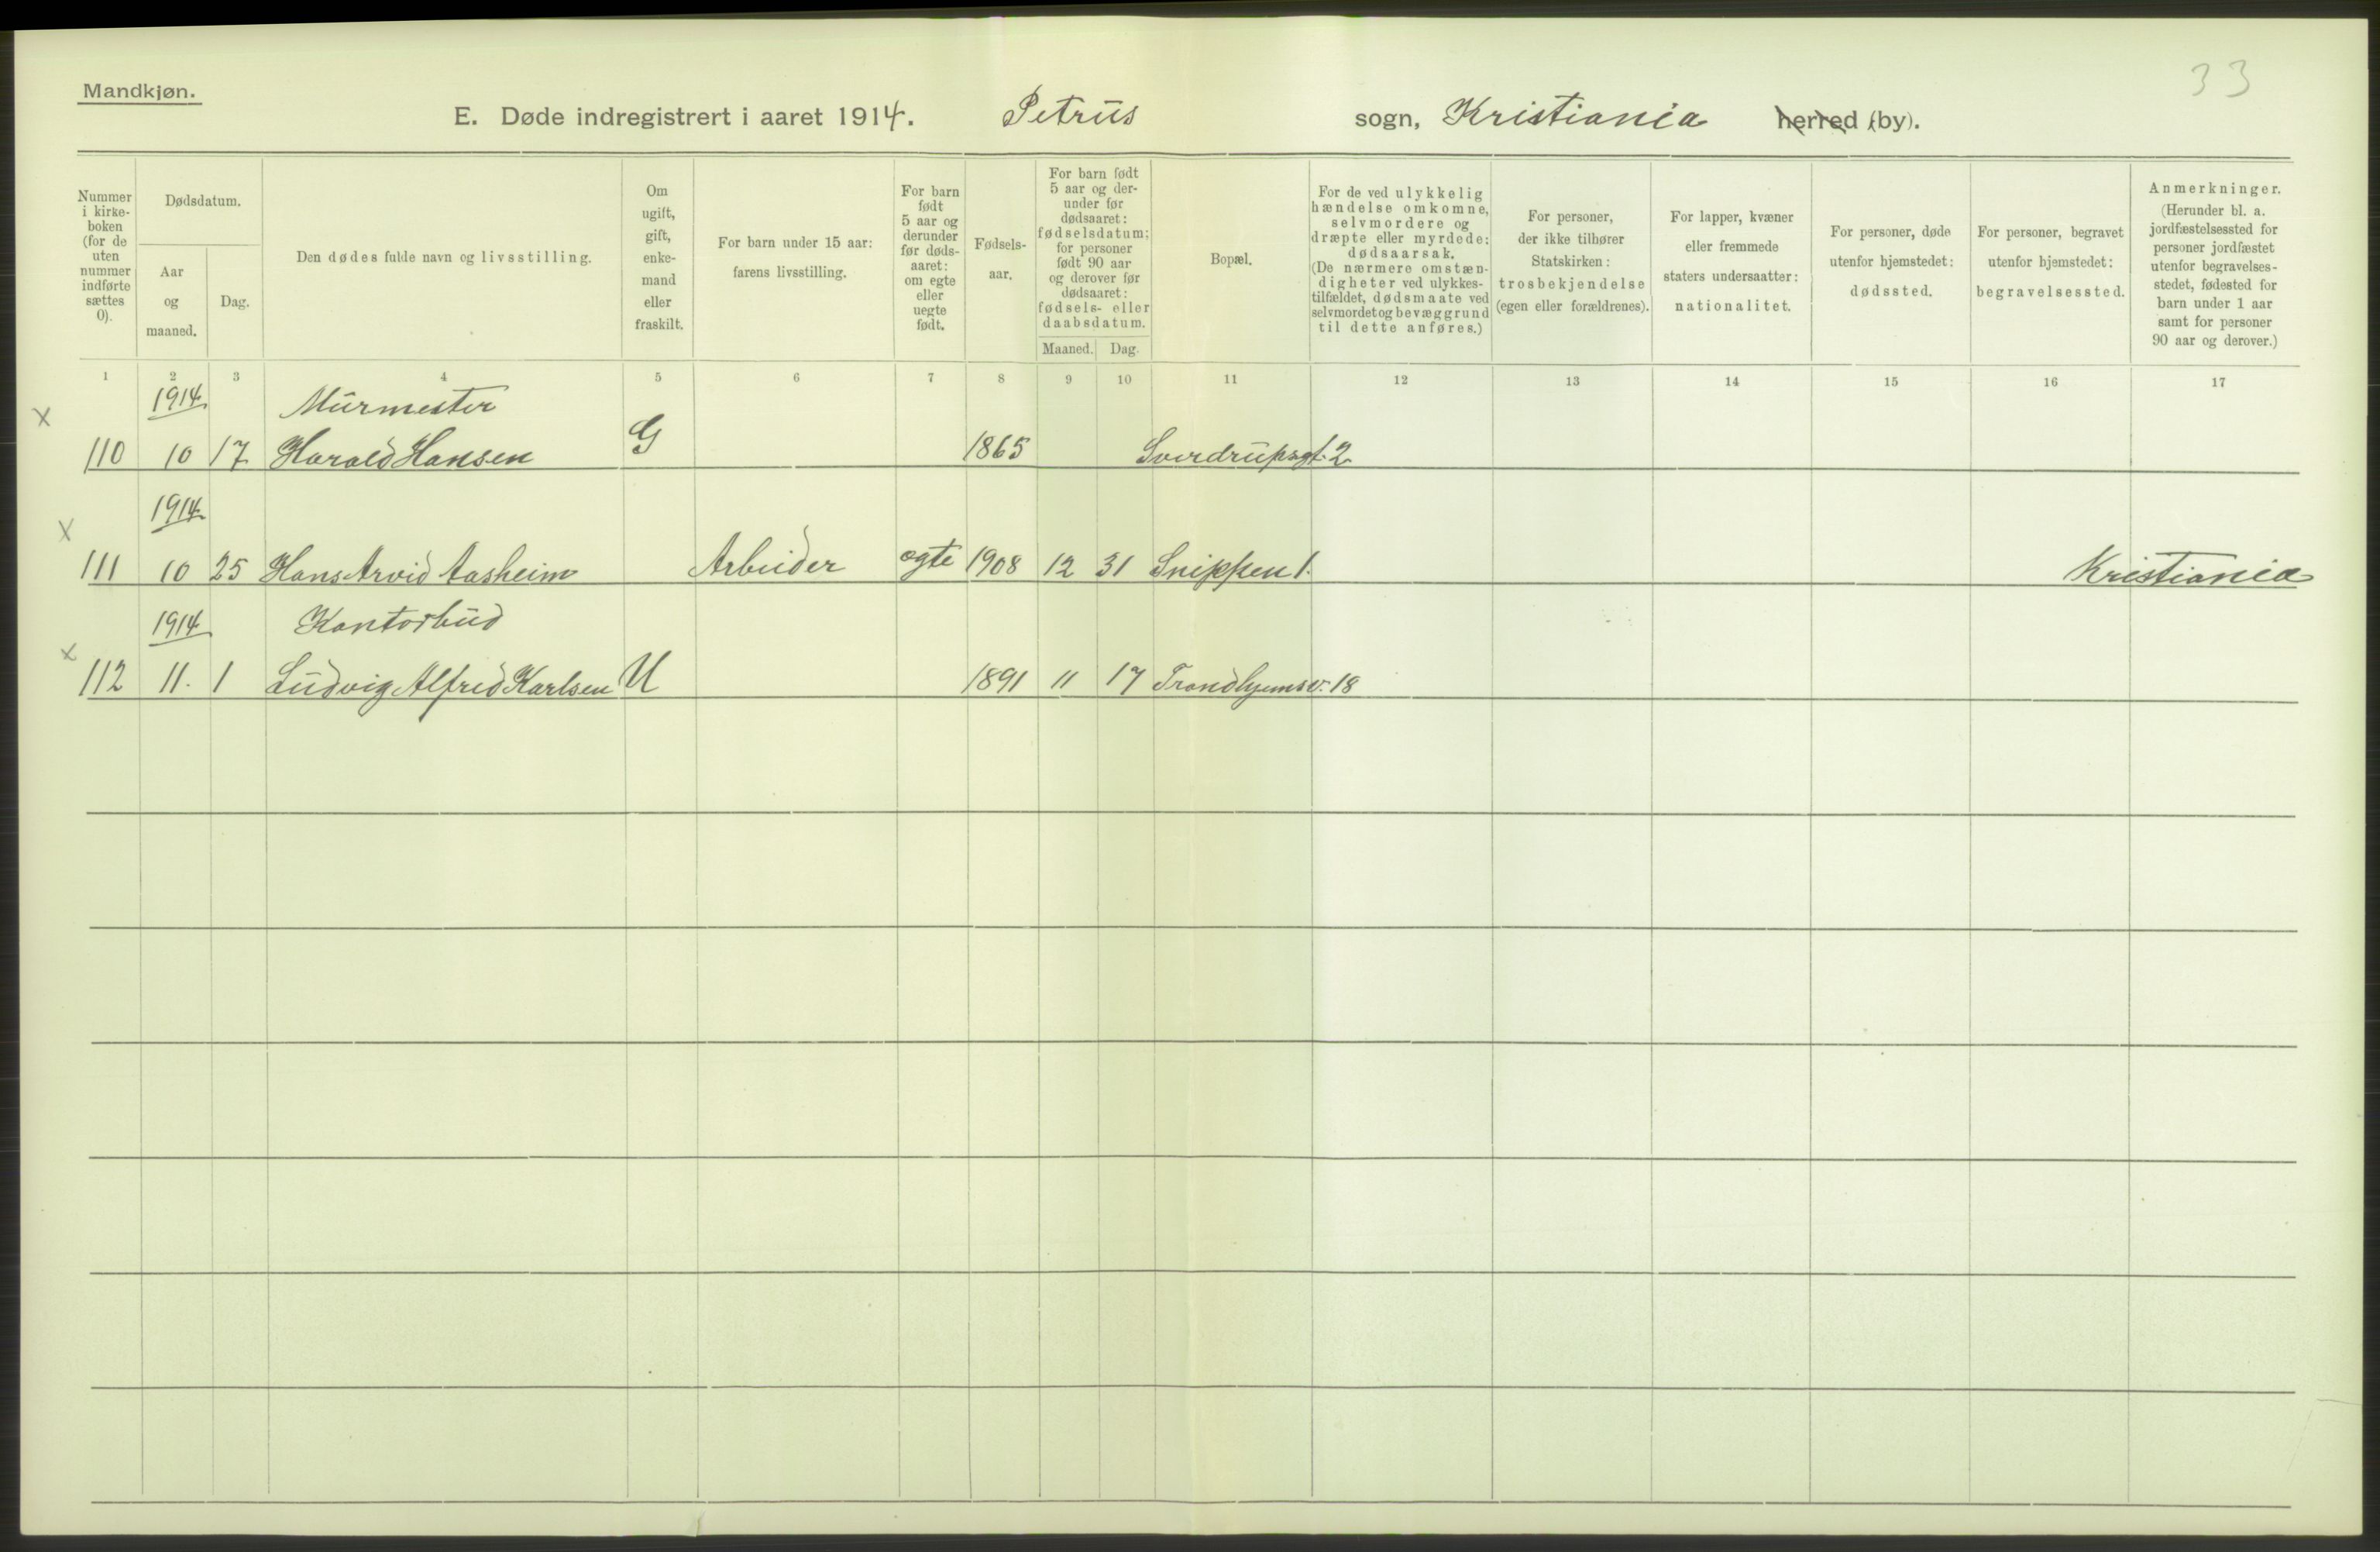 33
Mandkjøn.
E. Døde indregistrert i aaret 1914. Petrus sogn, Kristiania herred (by).
Nummer i kirke- boken (for de uten nummer indførte sættes 0).
Dødsdatum.
Aar og maaned.
Dag.
Den dødes fulde navn og livsstilling.
Om ugift, gift, enke- mand eller fraskilt.
For barn under 15 aar: farens livsstilling.
For barn født 5 aar og derunder før døds- aaret: om egte eller uegte født.
Fødsels- aar.
For barn født 5 aar og der- under før dødsaaret: fødselsdatum; for personer født 90 aar og derover før dødsaaret: fødsels- eller daabsdatum.
Maaned. Dag.
Bopæl.
For de ved ulykkelig hændelse omkomne, selvmordere og dræpte eller myrdede: dødsaarsak. (De nærmere omstæn- digheter ved ulykkes- tilfældet, dødsmaate ved selvmordet og bevæggrund til dette anføres.)
For personer, der ikke tilhører Statskirken: trosbekjendelse (egen eller forældrenes).
For lapper, kvæner eller fremmede staters undersaatter: nationalitet.
For personer, døde utenfor hjemstedet: dødssted.
For personer, begravet utenfor hjemstedet: begravelsessted.
Anmerkninger. (Herunder bl. a. jordfæstelsessted for personer jordfæstet utenfor begravelses- stedet, fødested for barn under 1 aar samt for personer 90 aar og derover.)
1 2 3 4 5 6 7 8 9 10 11 12 13 14 15 16 17
1914 Murmester
x 110 10 17 Harald Hansen G 1865 Sverdrupsgt. 2
1914
x 111 10 25 Hans Arvid Aasheim Arbeider egte 1908 12 31 Snippen 1. Kristiania
1914 Kontorbud
x 112 11. 1 Ludvig Alfred Karlsen U 1891 11 17 Trondhjemsv. 18